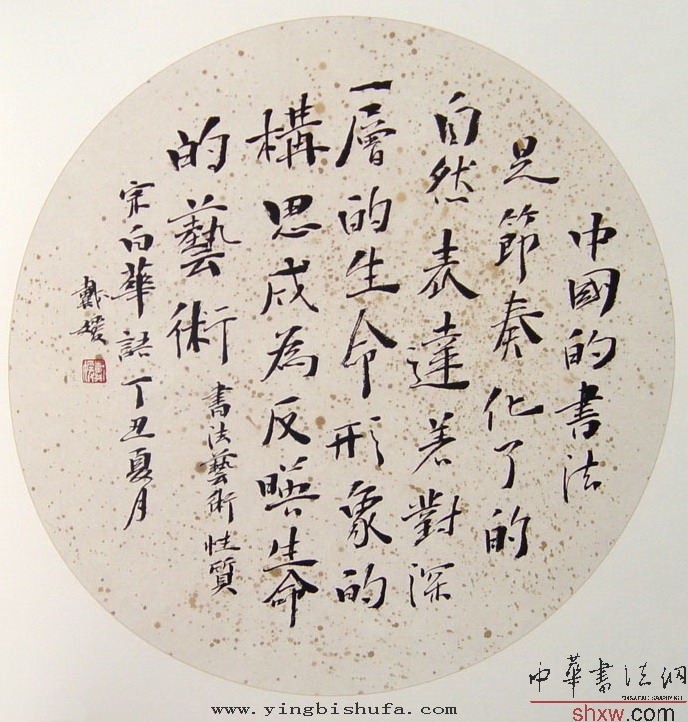 中國的書法
是節奏化了的
自然表達着對深
一層的生命形象的
構思成為反暎生命
的藝術 書法藝術性質
宗白華語丁丑夏月
戴媛
中華書法网
shxw.com
www.yingbishufa.com